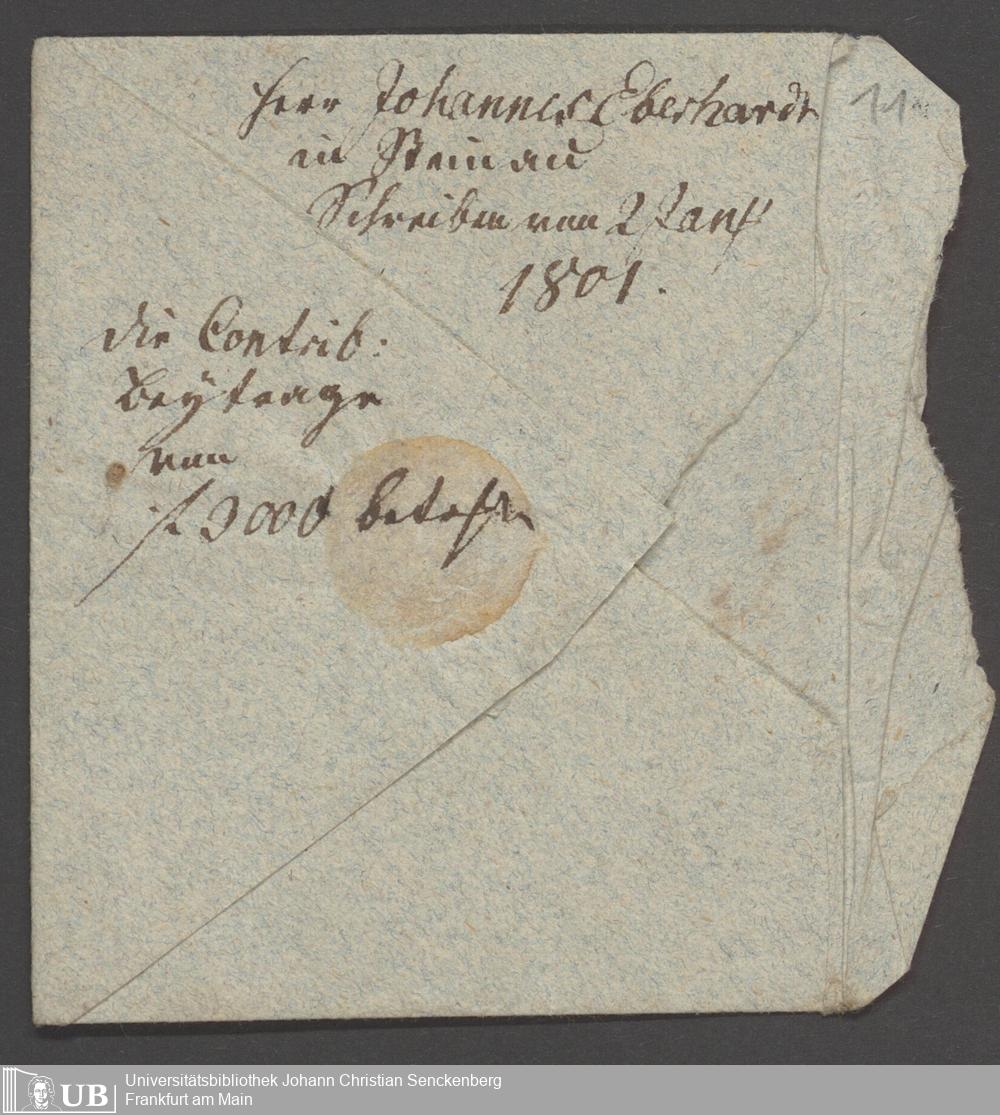 Herr Johannes Eberhardt
in Steinau
Schreiben von 2 Jan
1801.
11
die Contrib:
Beytrage
von
f 3000 betr
UB
Universitätsbibliothek Johann Christian Senckenberg
Frankfurt am Main